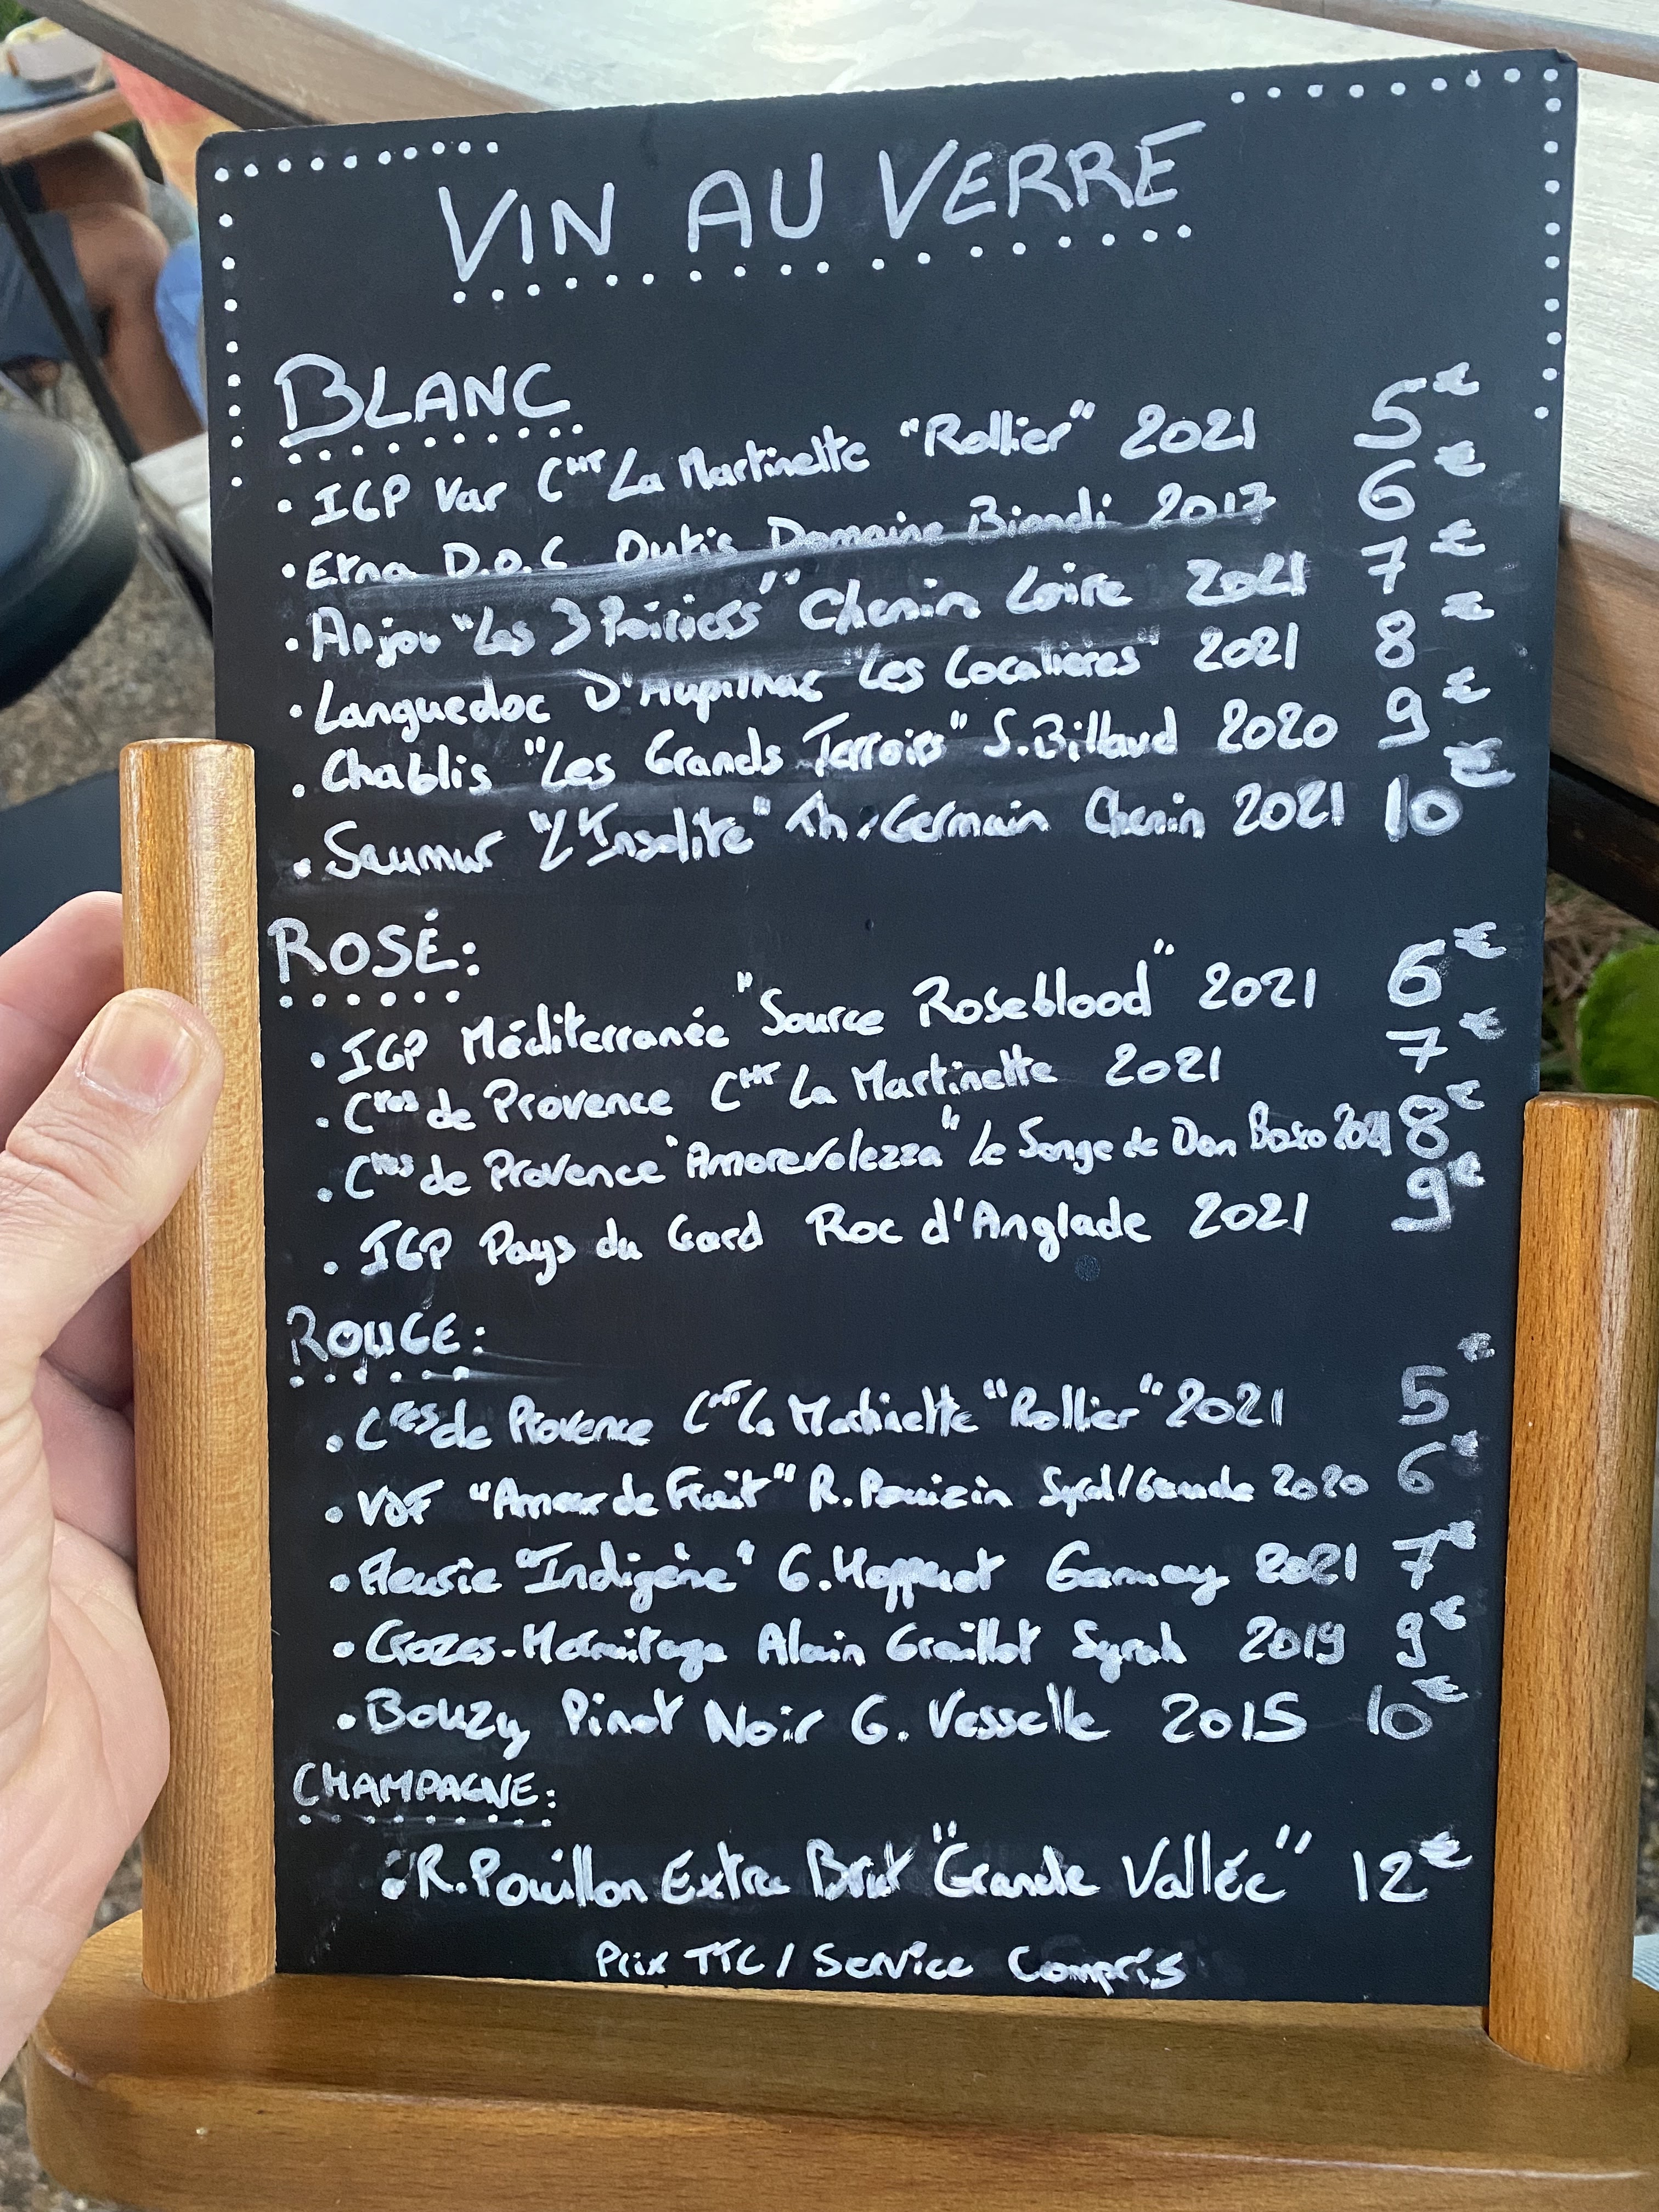 VIN AU VERRE
BLANC
• IGP Var CHT La Martinette "Rollier" 2021 5€
• Etna D.O.C Outis Domaine Biondi 2017 6€
• Anjou "Les 3 Poiriers" Chenin Loire 2021 7€
• Languedoc D'Aupilhac "Les Cocalières" 2021 8€
• Chablis "Les Grands Terroirs" S.Billaud 2020 9€
• Saumur "L'Insolite" Th. Germain Chenin 2021 10€
ROSÉ:
• IGP Méditerranée "Source Roseblood" 2021 6€
• Ctes de Provence CHT La Martinette 2021 7€
• Ctes de Provence "Amorevolezza" Le Songe de Don Bosco 2021 8€
• IGP Pays du Gard Roc d'Anglade 2021 9€
ROUGE:
• Ctes de Provence CHT La Martinette "Rollier" 2021 5€
• VDF "Amour de Fruit" R.Pouizin 2020 6€
• Fleurie "Indigène" G. Gamay 2021 7€
• Crozes-Hermitage Alain Graillot Syrah 2019 9€
• Bouzy Pinot Noir G. Vesselle 2015 10€
CHAMPAGNE:
• R.Pouillon Extra Brut "Grande Vallée" 12€
Prix TTC / Service Compris